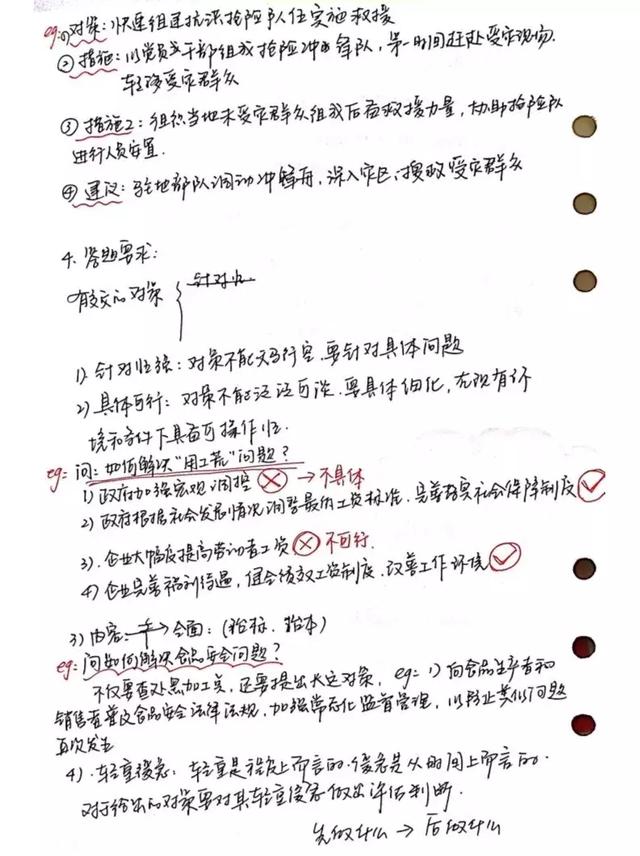 eg: ①对策：快速组建抗洪抢险队伍实施救援
②措施：以党员干部组成抢险冲锋队，第一时间赶赴受灾现场.
转移受灾群众
③措施2：组织当地未受灾群众组成后备救援力量，协助抢险队
进行人员安置.
④建议：驻地部队调动冲锋舟，深入灾区，搜救受灾群众
4. 答题要求：
有效的对策 { 针对性
1) 针对性强：对策不能天马行空.要针对具体问题
2) 具体可行：对策不能泛泛而谈.要具体细化，在现有环
境和条件下具备可操作性.
eg：问：如何解决"用工荒"问题？
1) 政府加强宏观调控 ⊗ → 不具体
2) 政府根据社会发展情况调整最低工资标准.完善落实社会保障制度 ✓
3). 企业大幅度提高劳动者工资 ⊗ 不可行.
4) 企业完善福利待遇，健全绩效工资制度.改善工作环境 ✓
3) 内容 → 全面：(治标、治本)
eg：问如何解决食品安全问题？
不仅要查处黑加工窝，还要提出长远对策，eg：1) 向食品生产者和
销售者普及食品安全法律法规，加强常态化监督管理，以防止类似问题
再次发生
4). 轻重缓急：轻重是程度上而言的.缓急是从时间上而言的.
对于给出的对策要对其轻重缓急做出评估判断.
先做什么 → 后做什么